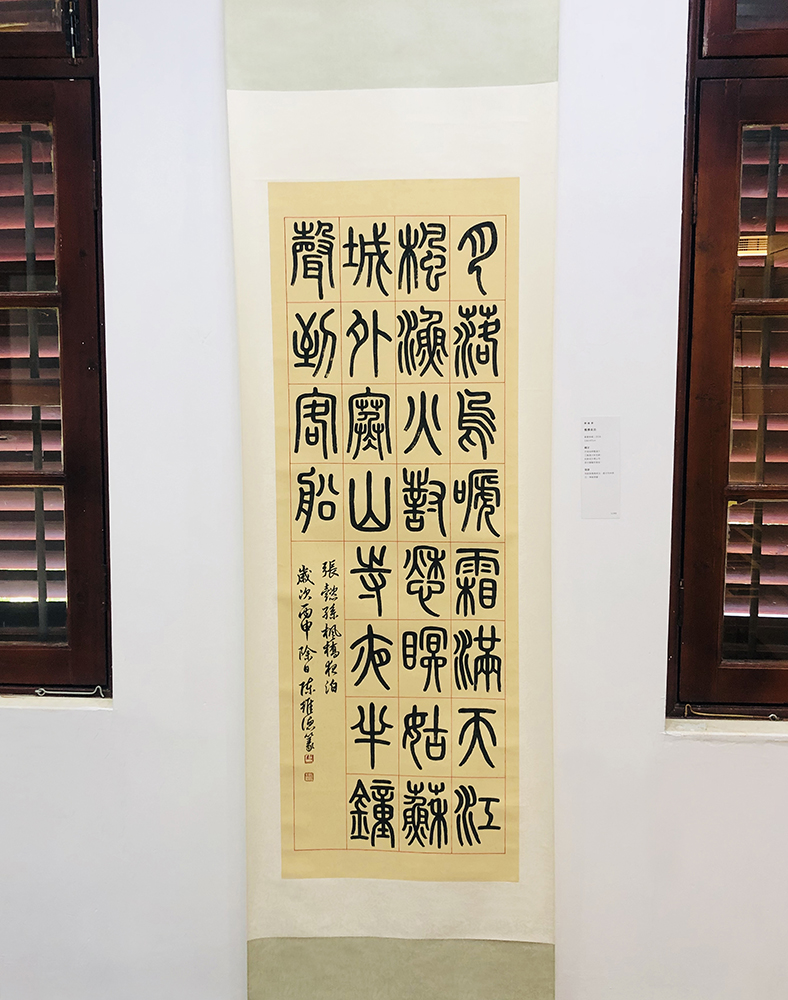 月落烏嗁霜滿天江
楓漁火對愁瞑姑蘇
城外寒山寺夜半鐘
聲到客船
張懿孫楓橋夜泊
歲次丙申除日陳雅德篆